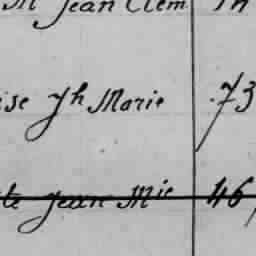 M Jean Clem
ise Jh Marie 73
te Jean Mie 46